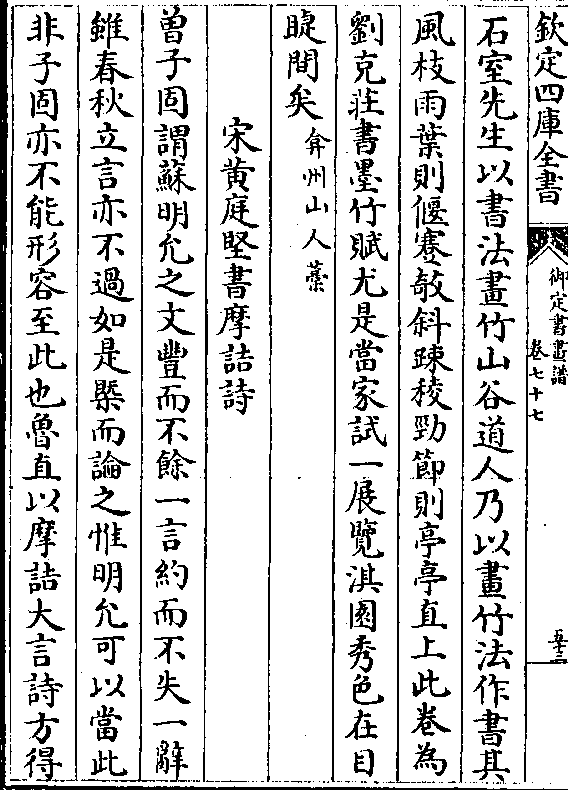 欽定四庫全書
御定書畫譜
卷七十七
五十三
石室先生以書法畫竹山谷道人乃以畫竹法作書其
風枝雨葉則偃蹇攲斜疎稜勁節則亭亭直上此卷為
劉克莊書墨竹賦尤是當家試一展覽淇園秀色在目
睫間矣弇州山人藁
宋黄庭堅書摩詰詩
曽子固謂蘇明允之文豐而不餘一言約而不失一辭
雖春秋立言亦不過如是槩而論之惟明允可以當此
非子固亦不能形容至此也魯直以摩詰大言詩方得